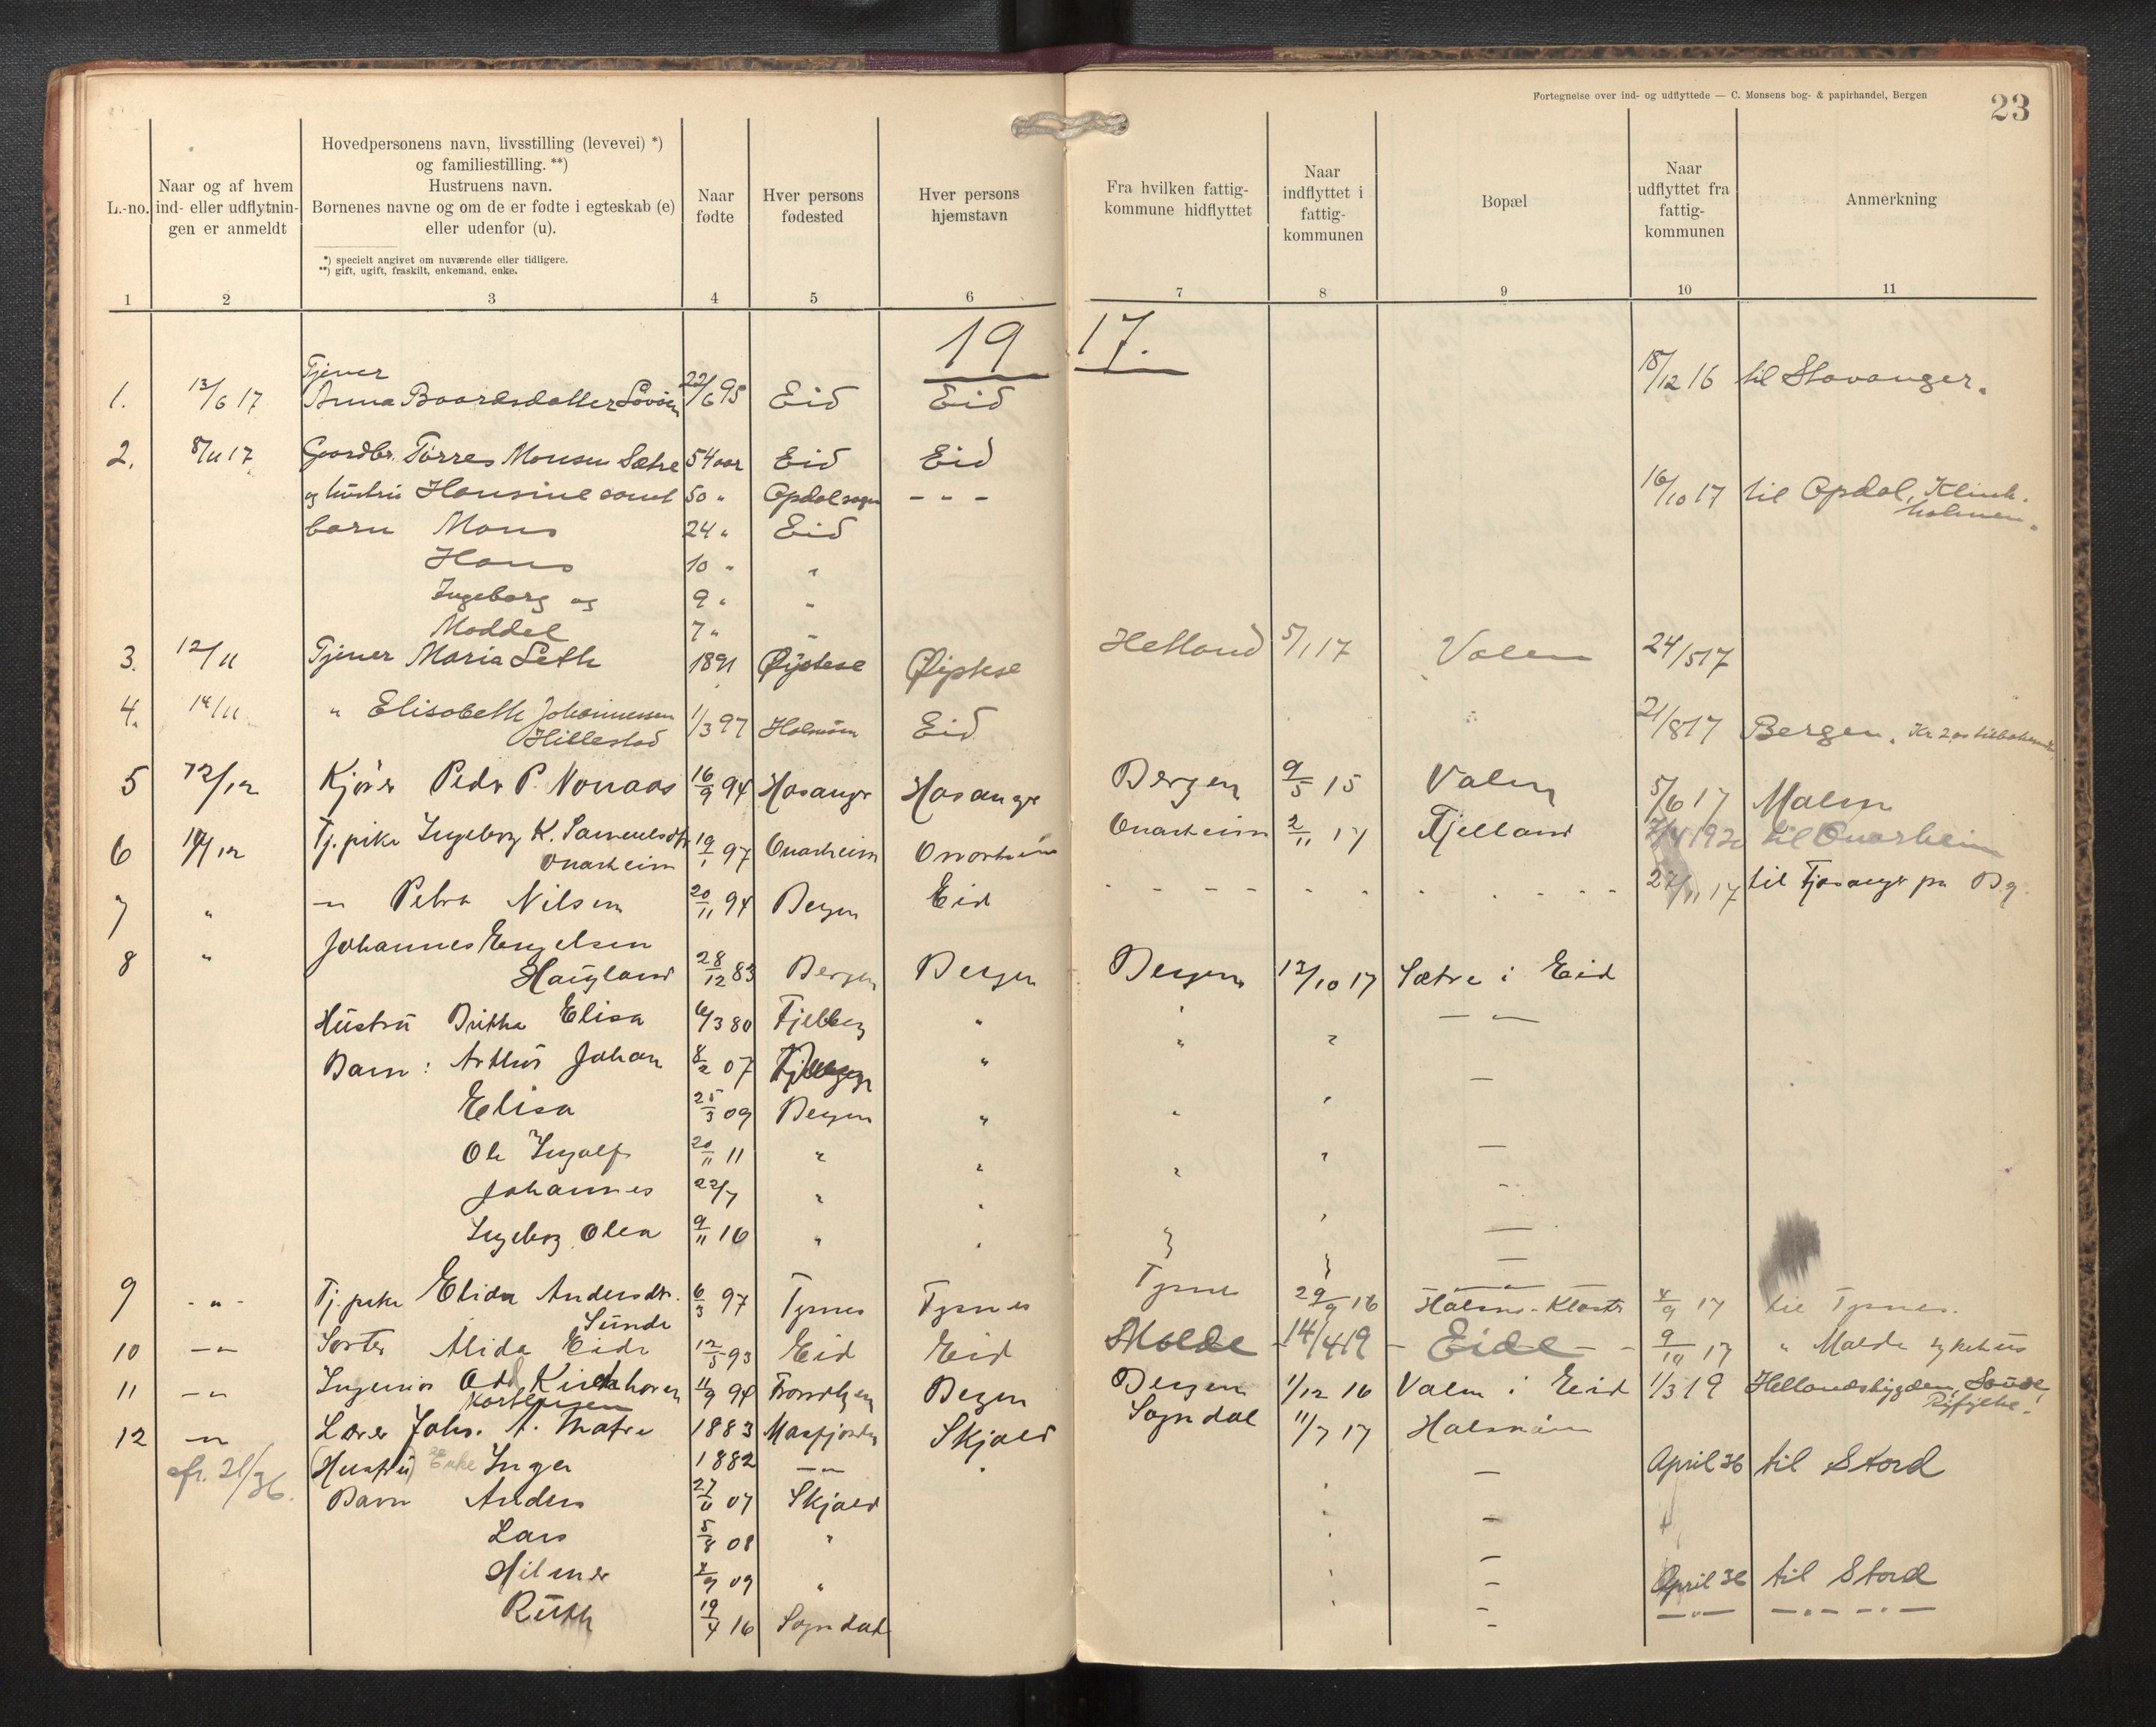 Fortegnelse over ind- og udflyttede — C. Monsens bog- & papirhandel, Bergen
23
L.-no.
Naar og af hvem ind- eller udflytnin-gen er anmeldt
Hovedpersonens navn, livsstilling (levevei) *)
og familiestilling. **)
Hustruens navn.
Børnenes navne og om de er fødte i egteskab (e)
eller udenfor (u).
*) specielt angivet om nuværende eller tidligere.
**) gift, ugift, fraskilt, enkemand, enke.
Naar fødte
Hver persons fødested
Hver persons hjemstavn
Fra hvilken fattig-kommune hidflyttet
Naar indflyttet i fattig-kommunen
Bopæl
Naar udflyttet fra fattig-kommunen
Anmerkning
1 2 3 4 5 6 7 8 9 10 11
19 17.
Tjener
1. 13/6 17 Anna Baardsdatter 22/6 95 Eid Eid 18/12 16 til Stavanger.
2. 8/11 17 Gaardbr. Tørres Monsen Sætre 54 aar Eid Eid
og hustru Hansine samt 50 " Opdal sogn - - - 16/10 17 til Opdal, Klink-
holmen.
barn Mons 24 " Eid
Hans 10 " "
Ingeborg og 9 " "
Maddel 7 " "
3. 12/11 Tjener Maria Seth 1891 Øystese Øistese Hetland 5/1 17 Valen 24/5 17
4. 14/11 " Elisabeth Johannessen
Hillestad 1/3 97 Halsnøen Eid 21/8 17 Bergen.
5 12/12 Kjører Pedr P. Nonaas 16/9 94 Hosangr Hosanger Bergen 9/5 15 Valen 5/6 17 Malm
6 14/12 Tj. pike Ingeborg K. Samuelsdtr
Onarheim 19/1 97 Onarheim Onarheim Onarheim 2/11 17 Fjelland til Onarheim
7 " — " Petra Nilsen 20/11 94 Bergen Eid - - - - 27/11 17 til Fjøsanger pr Bg.
8 " Johannes Engelsen
Haugland 28/12 83 Bergen Bergen Bergen 12/10 17 Sætre i Eid
Hustru Britha Elisa 6/3 80 Fjelberg " " — " —
Barn: Arthur Johan 8/2 07 " " " —
Elisa 25/3 09 Bergen " " " —
Ole Ingolf 20/11 11 " " " " —
Johannes 22/7 " " —
Ingeborg Olea 9/11 16 " " —
9 - " - Tj. pike Elida Andersdtr.
Sunde 6/3 97 Tysnes Tysnes Tysnes 29/9 16 Halsnø-Kloster 4/9 17 til Tysnes.
10 — " Søster Alida Eide 12/5 93 Eid Eid Molde - 14/4 19 - Eide - - 9/10 17 " Molde sykehus
11 — " Ingeniør Odd Kirkhorn
Kortgaen 11/9 94 Trondhjem Bergen Bergen 1/12 16 Valen i Eid 1/3 19 Hellandsbygden, Saude,
Ryfylke.
12 — " Lærer Johs. A. Matre 1883 Masfjorden Skjold Sogndal 11/7 17 Halsnøen
cfr. 21/36. (Hustru) Enke Inga 1882 — " — " — April 36 til Stord
Barn Anders 27/6 07 Skjold
Lars 5/8 08 "
Hilmer 4/9 09 " — April 36 til Stord
Ruth 19/4 16 Sogndal — " — — " —